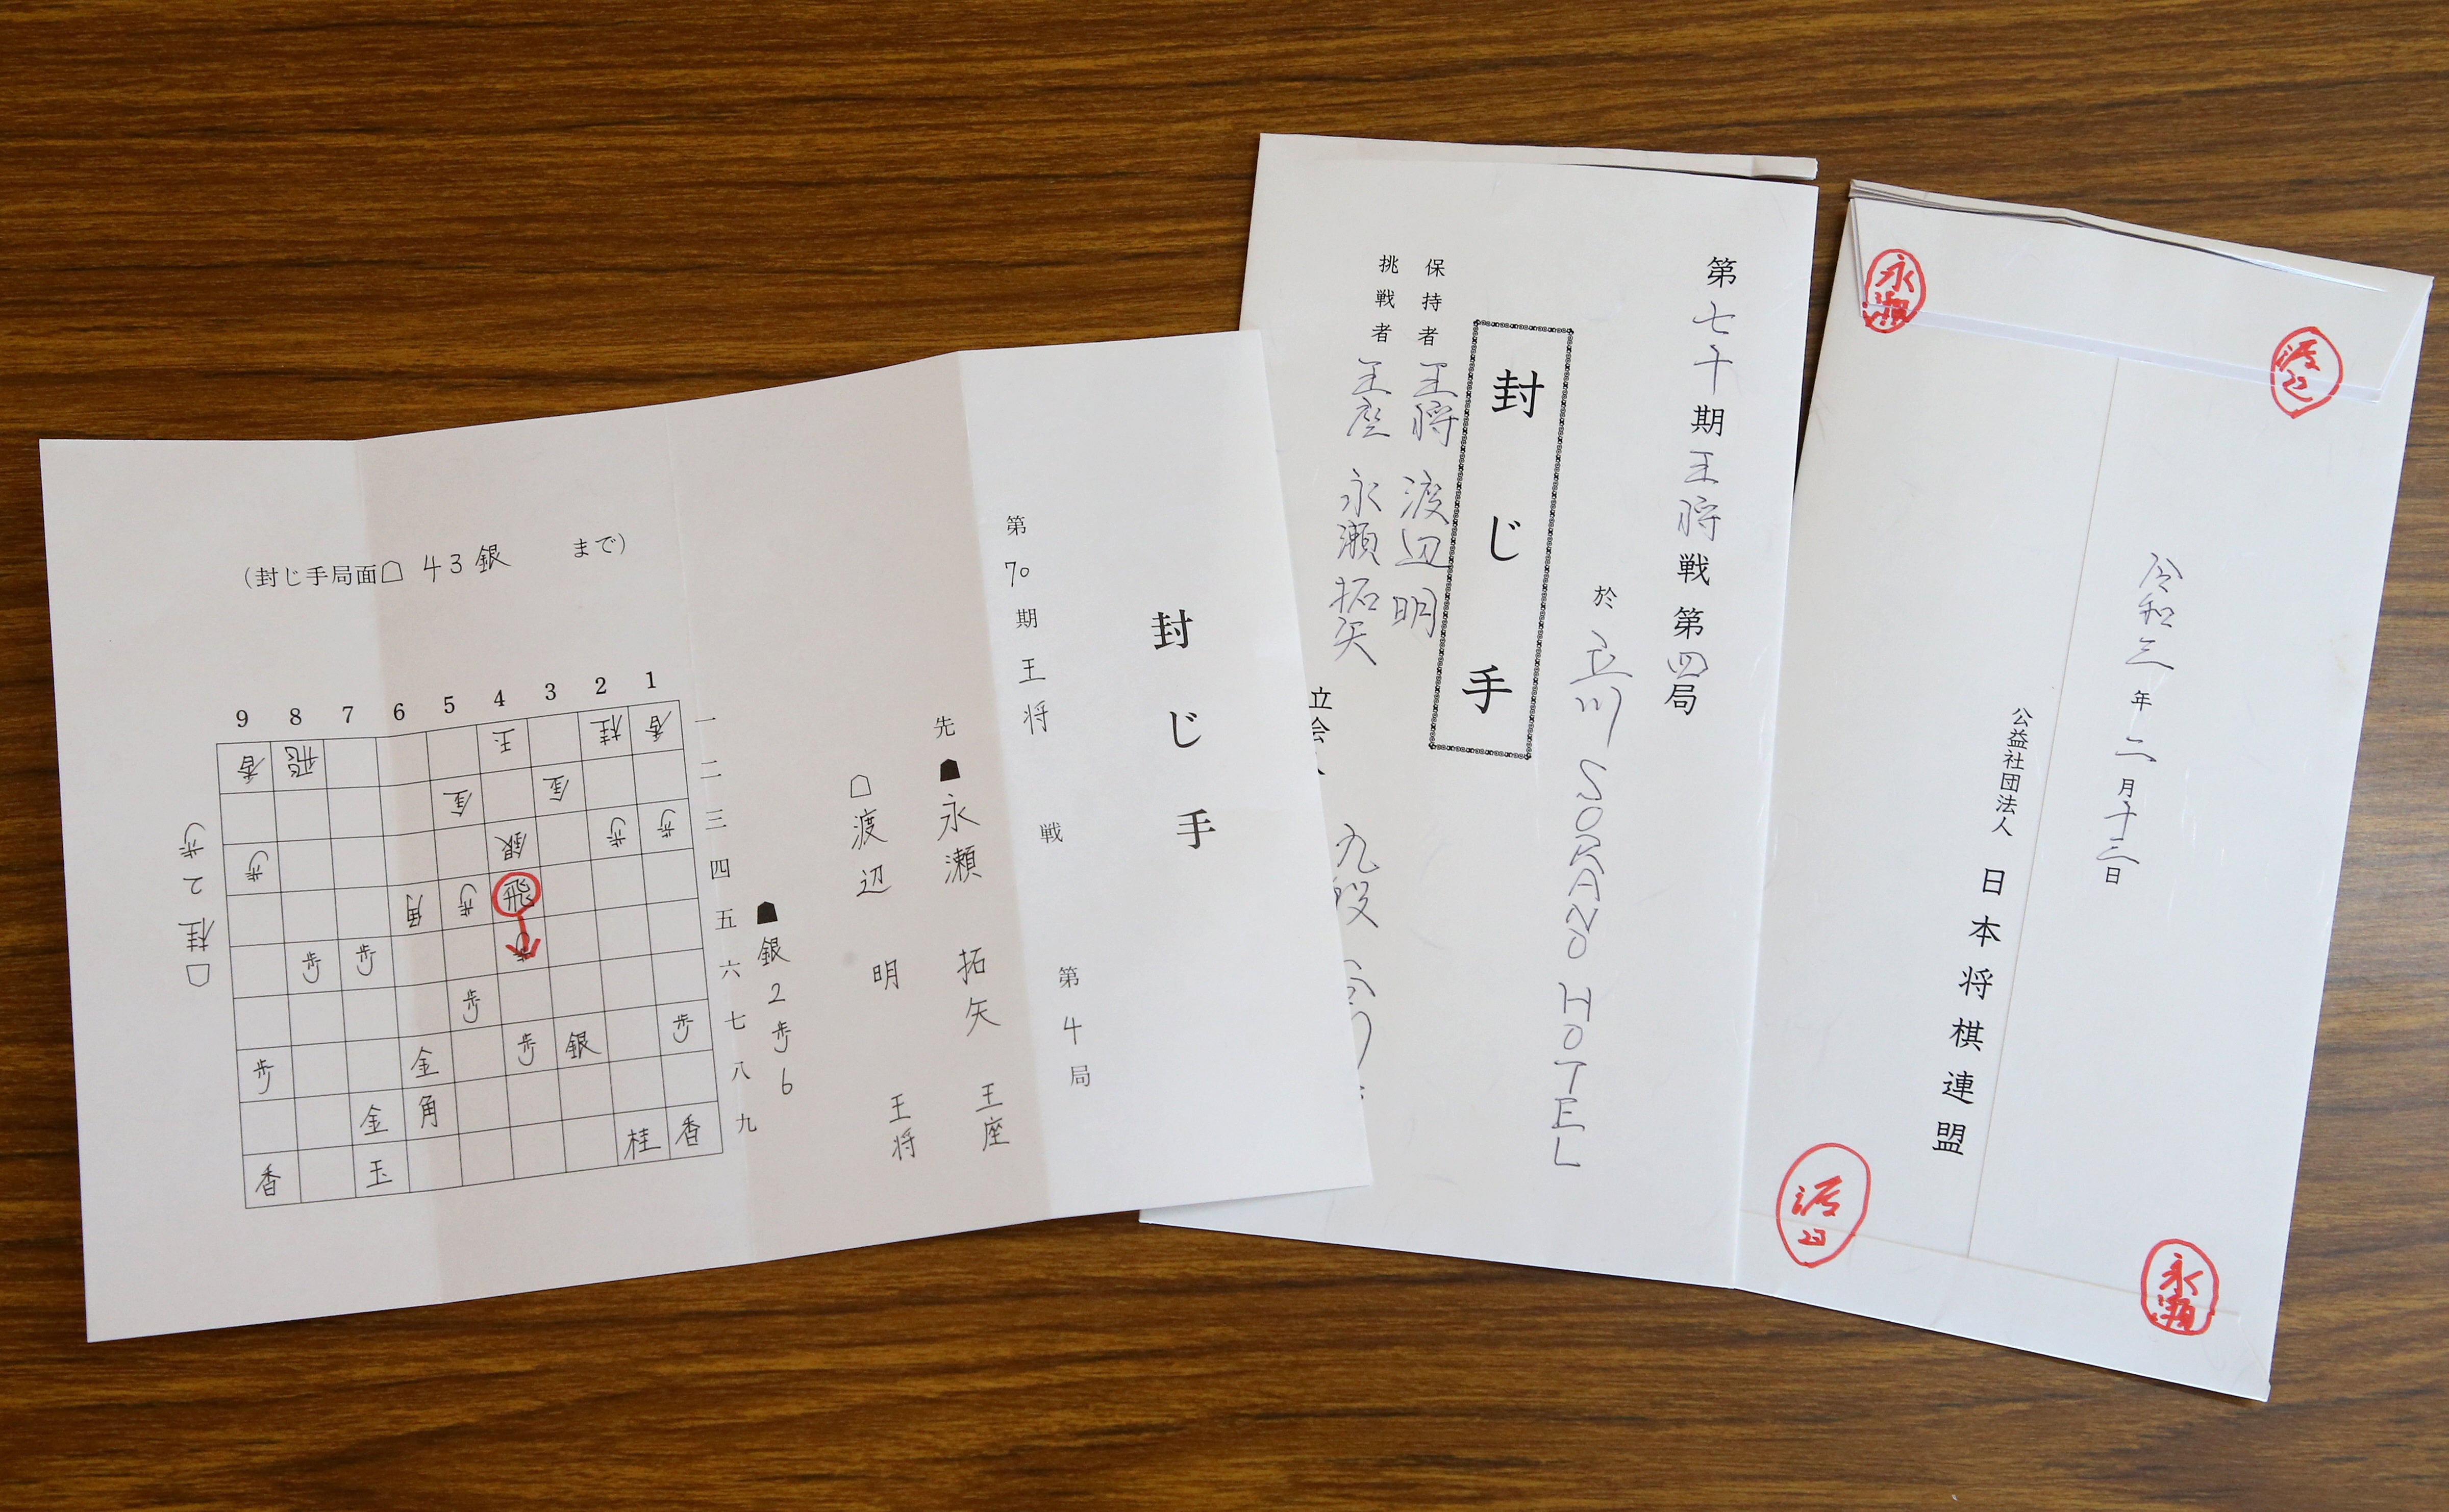 封じ手
第70期王将戦 第4局
先 ☗永瀬 拓矢 王座
☖渡辺 明 王将
☗銀2歩6
(封じ手局面☖ 43銀 まで)
9 8 7 6 5 4 3 2 1
香 飛 玉 桂 香 一
金 金 二
歩 銀 歩 歩 三
角 歩 飛 四
歩 歩 歩 五
歩 六
歩 金 歩 銀 歩 七
金 角 八
香 玉 桂 香 九
☖桂2歩
第七十期王将戦第四局
於 立川 SORANO HOTEL
封じ手
保持者 王将 渡辺明
挑戦者 王座 永瀬拓矢
立会人 九段
令和三年二月十三日
公益社団法人 日本将棋連盟
永瀬
渡辺
渡辺
永瀬